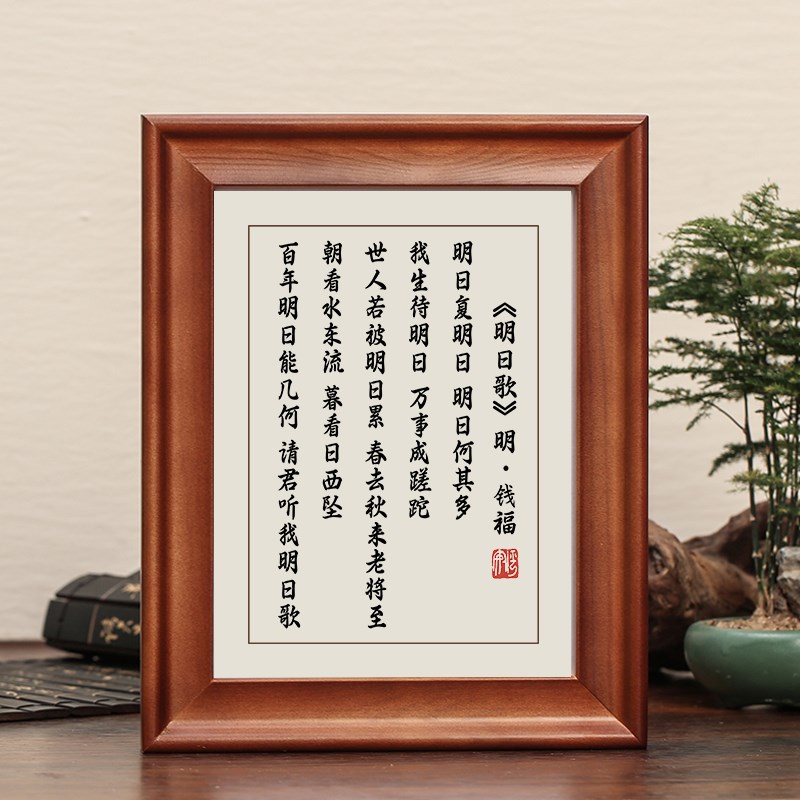 《明日歌》明·钱福
明日复明日 明日何其多
我生待明日 万事成蹉跎
世人若被明日累 春去秋来老将至
朝看水东流 暮看日西坠
百年明日能几何 请君听我明日歌